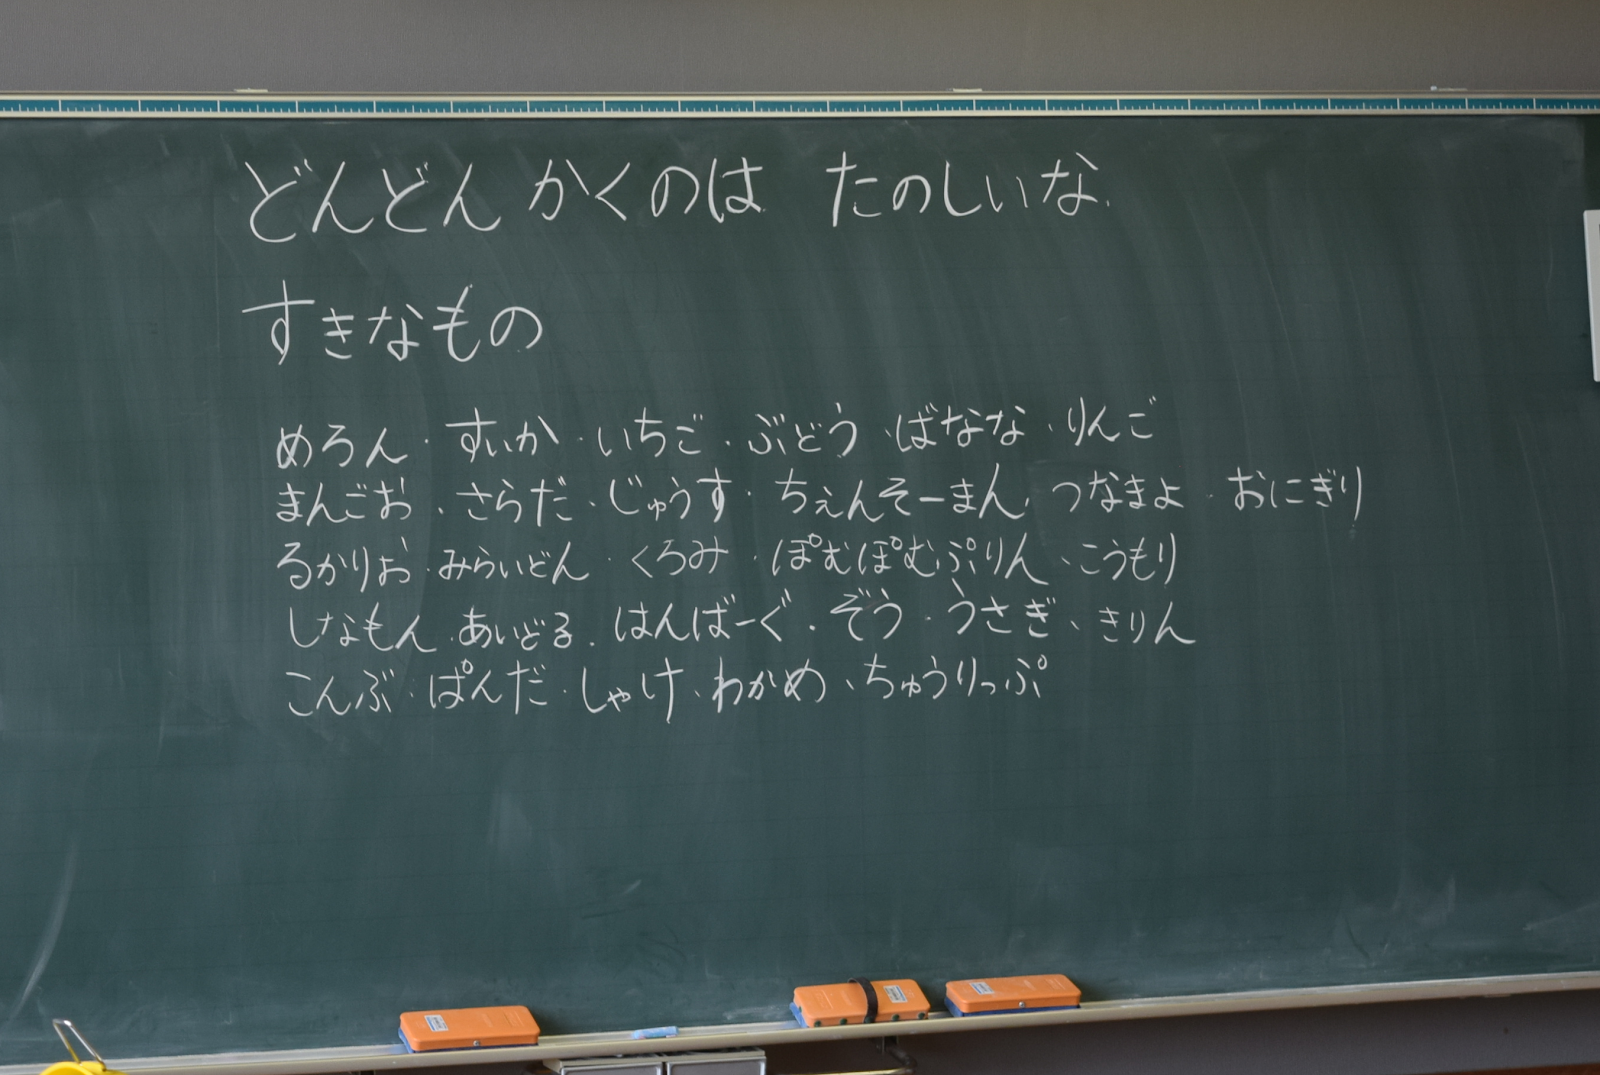 どんどん かくのは たのしいな
すきなもの
めろん・すいか・いちご・ぶどう・ばなな・りんご
まんごお・さらだ・じゅうす・ちぇんそーまん・つなまよ・おにぎり
るかりお・みらいどん・くろみ・ぽむぽむぷりん・こうもり
しなもん・あいどる・はんばーぐ・ぞう・うさぎ・きりん
こんぶ・ぱんだ・しゃけ・わかめ・ちゅうりっぷ